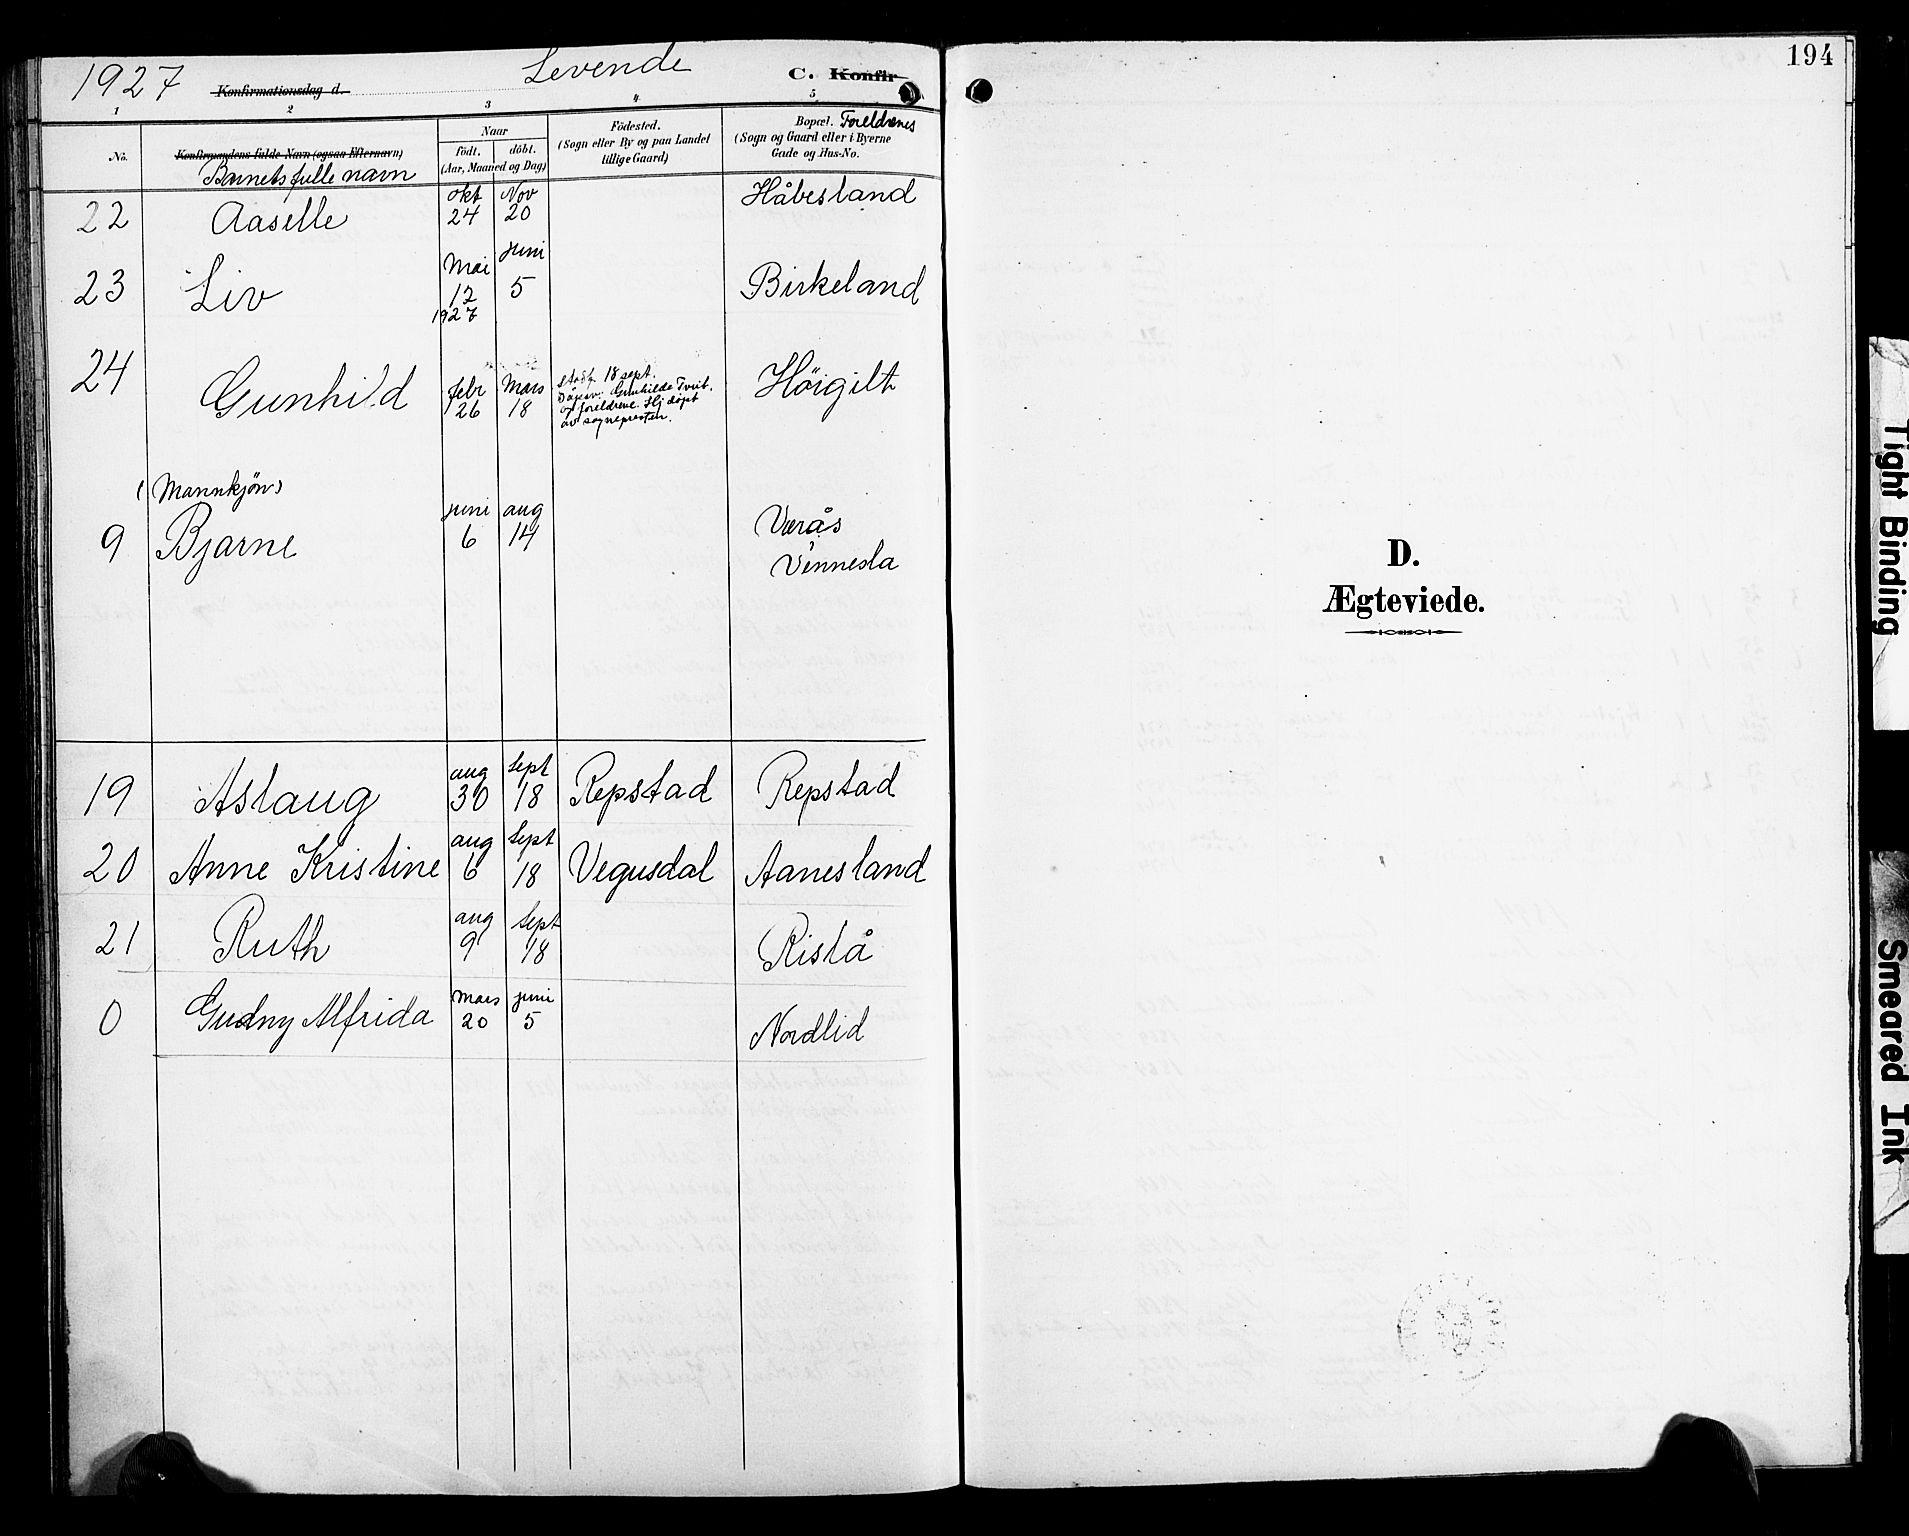 1927 Konfirmationsdag d. Levende C. Konfir-
1 2 3 4 5
No. Konfirmandens fulde Navn (ogsaa Efternavn) Naar Födested. Bopæl. Foreldrenes
Barnets fulle navn født. døbt. (Sogn eller By og paa Landet (Sogn og Gaard eller i Byerne
(Aar, Maaned og Dag) tillige Gaard) Gade og Hus-No.
okt Nov
22 Aaselle 24 20 Håbesland
Mai juni
23 Liv 12 5 Birkeland
1927
24 Gunhild febr 26 mars 18 Höigilt
stadf. 18 sept.
Gunhilde Tveit.
og foreldrene. Hj döpt
av sognepresten.
(Mannkjön)
juni aug
9 Bjarne 6 14 Værås
Vennesla
aug sept
19 Aslaug 30 18 Repstad Repstad
aug sept
20 Anne Kristine 6 18 Vegusdal Aanesland
aug sept
21 Ruth 9 18 Rislå
mars juni
0 Gudny Alfrida 20 5 Nordlid
194
D.
Ægteviede.
Tight Binding
Smeared Ink